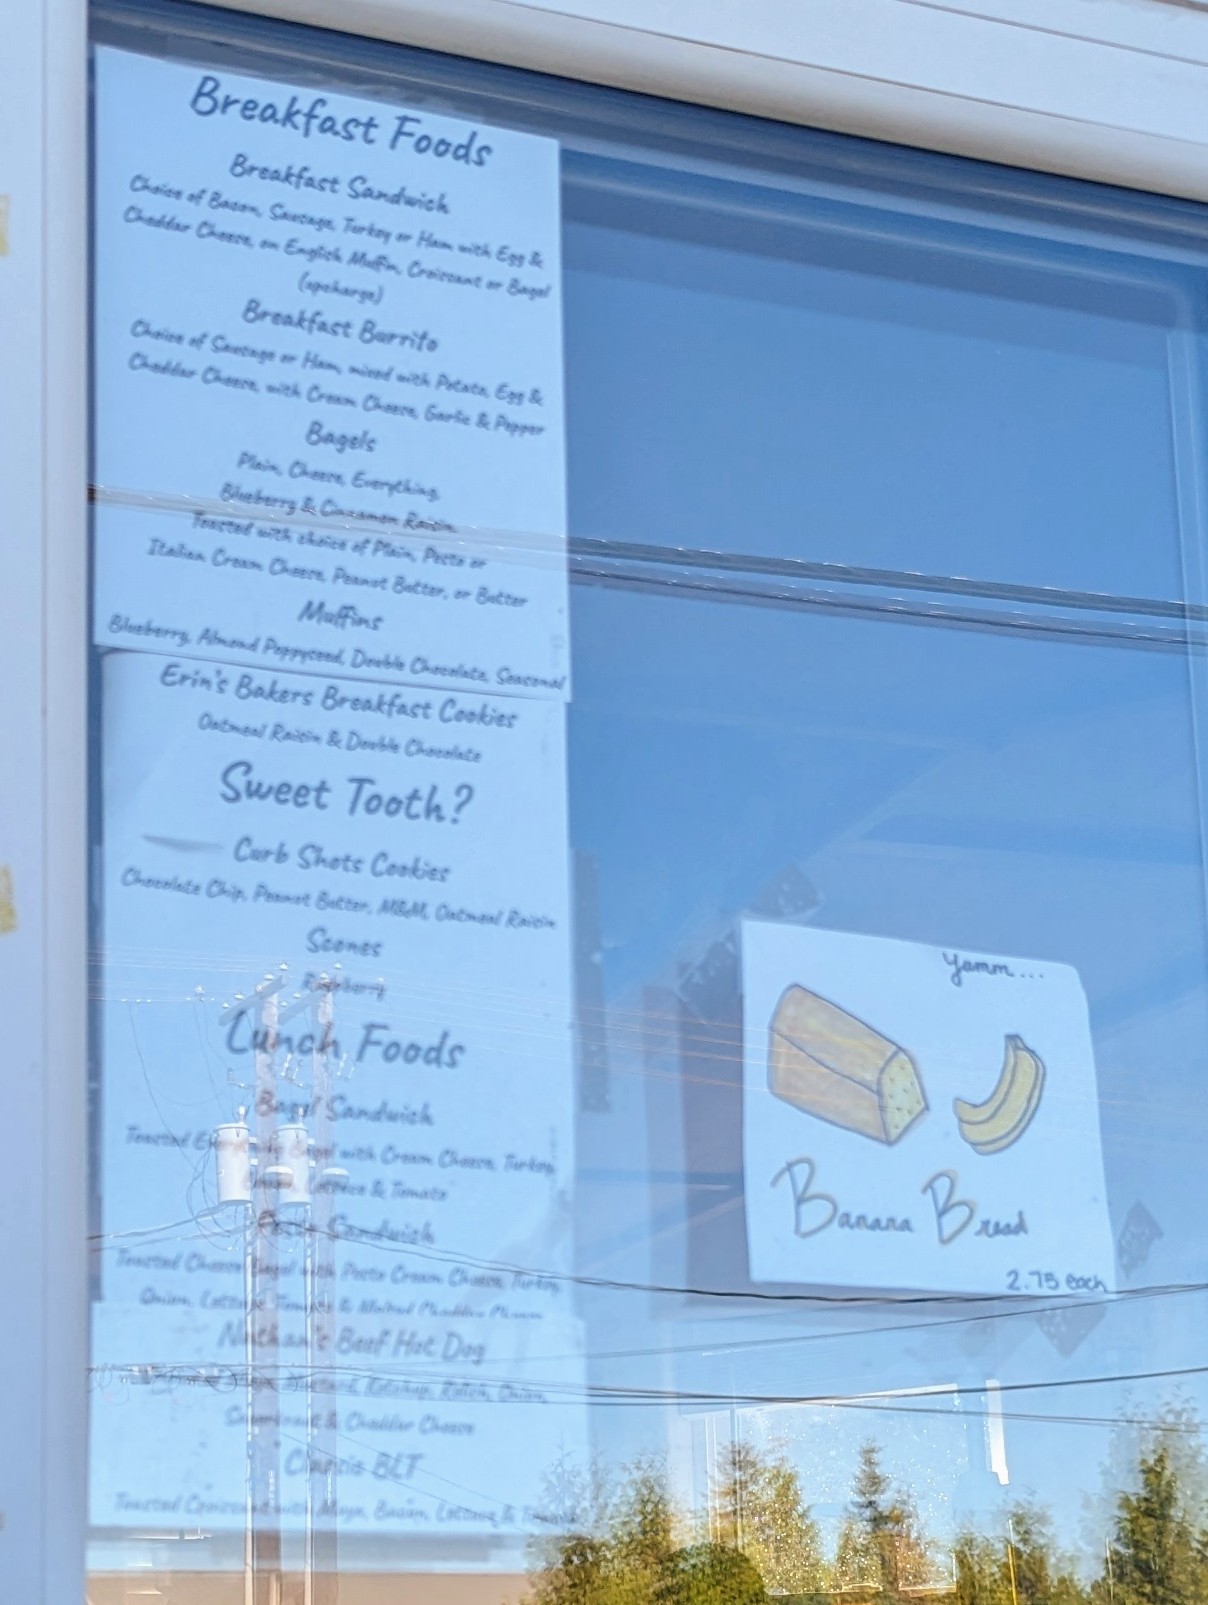 Breakfast Foods
Breakfast Sandwich
Choice of Bacon, Sausage, Turkey or Ham with Egg &
Cheddar Cheese, on English Muffin, Croissant or Bagel
(upcharge)
Breakfast Burrito
Choice of Sausage or Ham, mixed with Potato, Egg &
Cheddar Cheese, with Cream Cheese, Garlic & Pepper
Bagels
Plain, Cheese, Everything,
Blueberry & Cinnamon Raisin
Toasted with choice of Plain, Pesto or
Italian Cream Cheese, Peanut Butter, or Butter
Muffins
Blueberry, Almond Poppyseed, Double Chocolate, Seasonal
Erin's Bakers Breakfast Cookies
Oatmeal Raisin & Double Chocolate
Sweet Tooth?
Curb Shots Cookies
Chocolate Chip, Peanut Butter, M&M, Oatmeal Raisin
Scones
Raspberry
Lunch Foods
Bagel Sandwich
Toasted Everything Bagel with Cream Cheese, Turkey,
Onion, Lettuce & Tomato
Pesto Sandwich
Toasted Cheese Bagel with Pesto Cream Cheese, Turkey,
Onion, Lettuce, Tomato & Melted Cheddar Cheese
Nathan's Beef Hot Dog
Mustard, Ketchup, Relish, Onion,
Sauerkraut & Cheddar Cheese
Classic BLT
Toasted Croissant with Mayo, Bacon, Lettuce & Tomato
Yamm...
Banana Bread
2.75 each